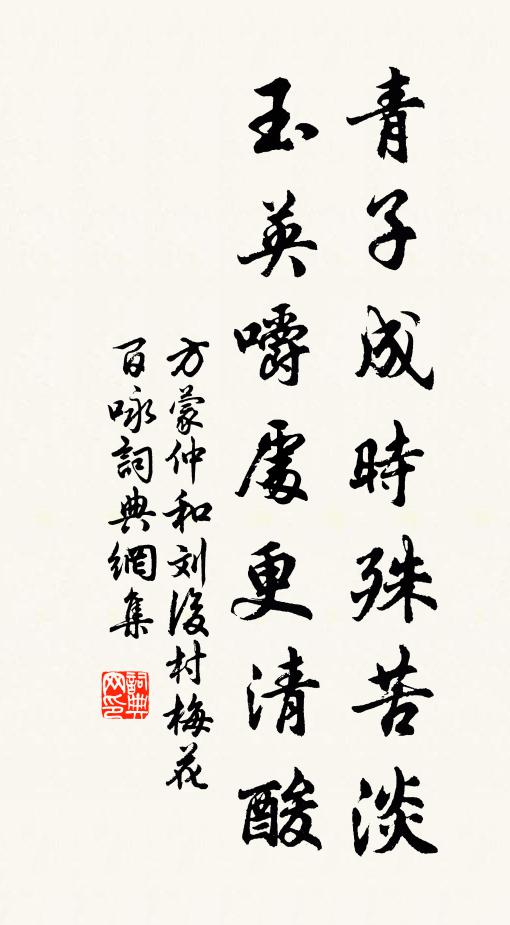 青子成時殊苦淡
玉英嚼處更清酸
方蒙仲和刘後村梅花
百咏詞典網集
詞典
网印